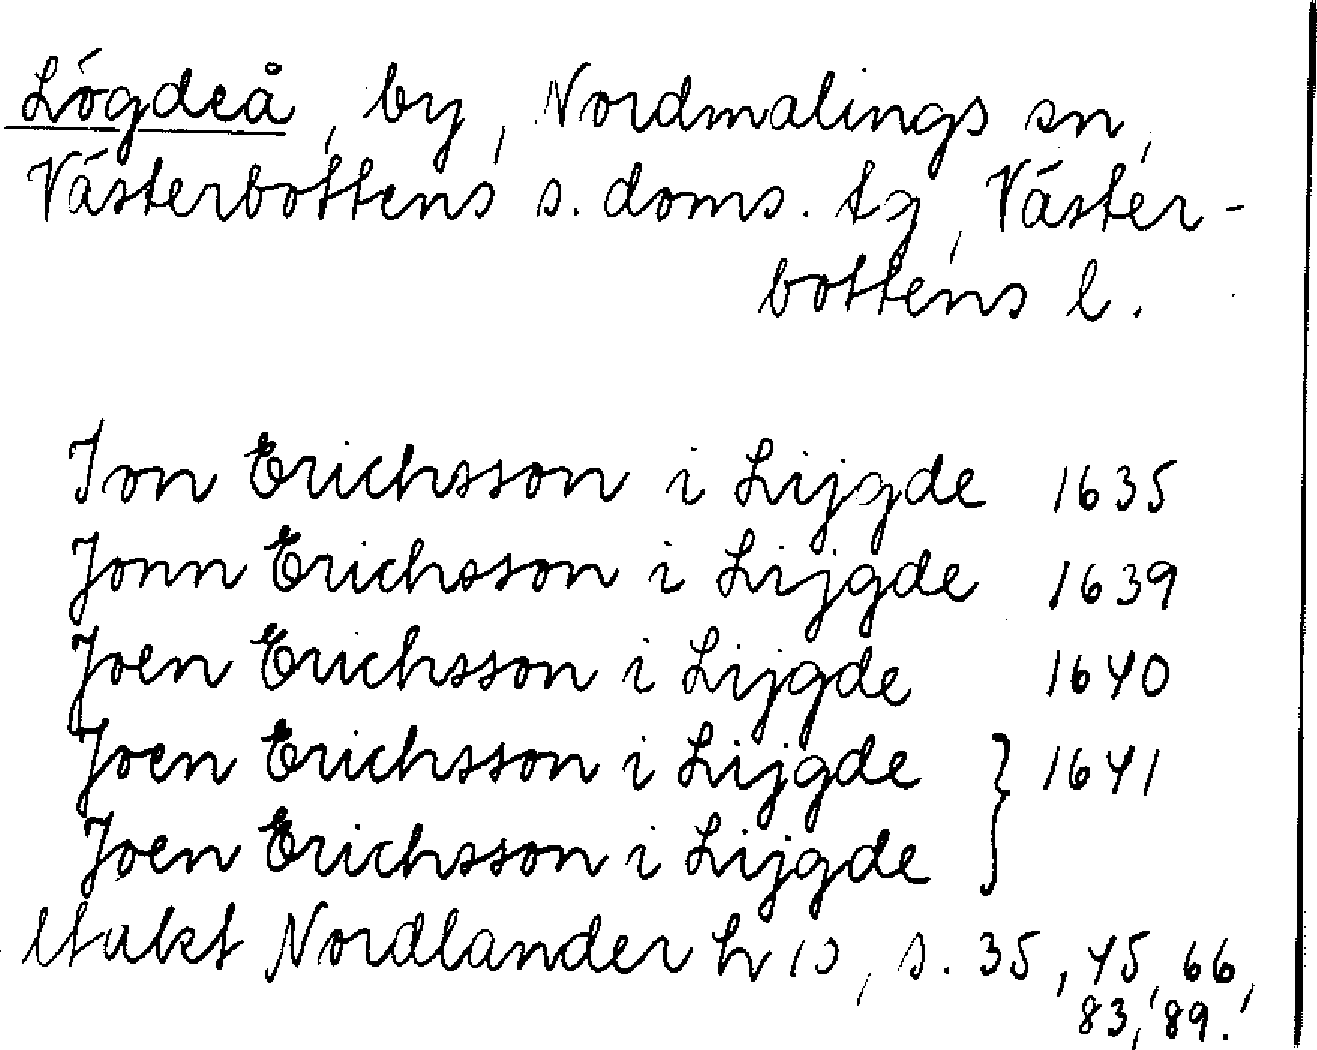 Lögdeå, by, Nordmalings sn,
Västerbottens s. doms. tg, Väster-
bottens l.
Jon Erichsson i Lijgde 1635
Jonn Erichsson i Lijgde 1639
Joen Erichsson i Lijgde 1640
Joen Erichsson i Lijgde } 1641
Joen Erichsson i Lijgde
Utakt Nordlander s. 35, 45, 66,
83, 89.